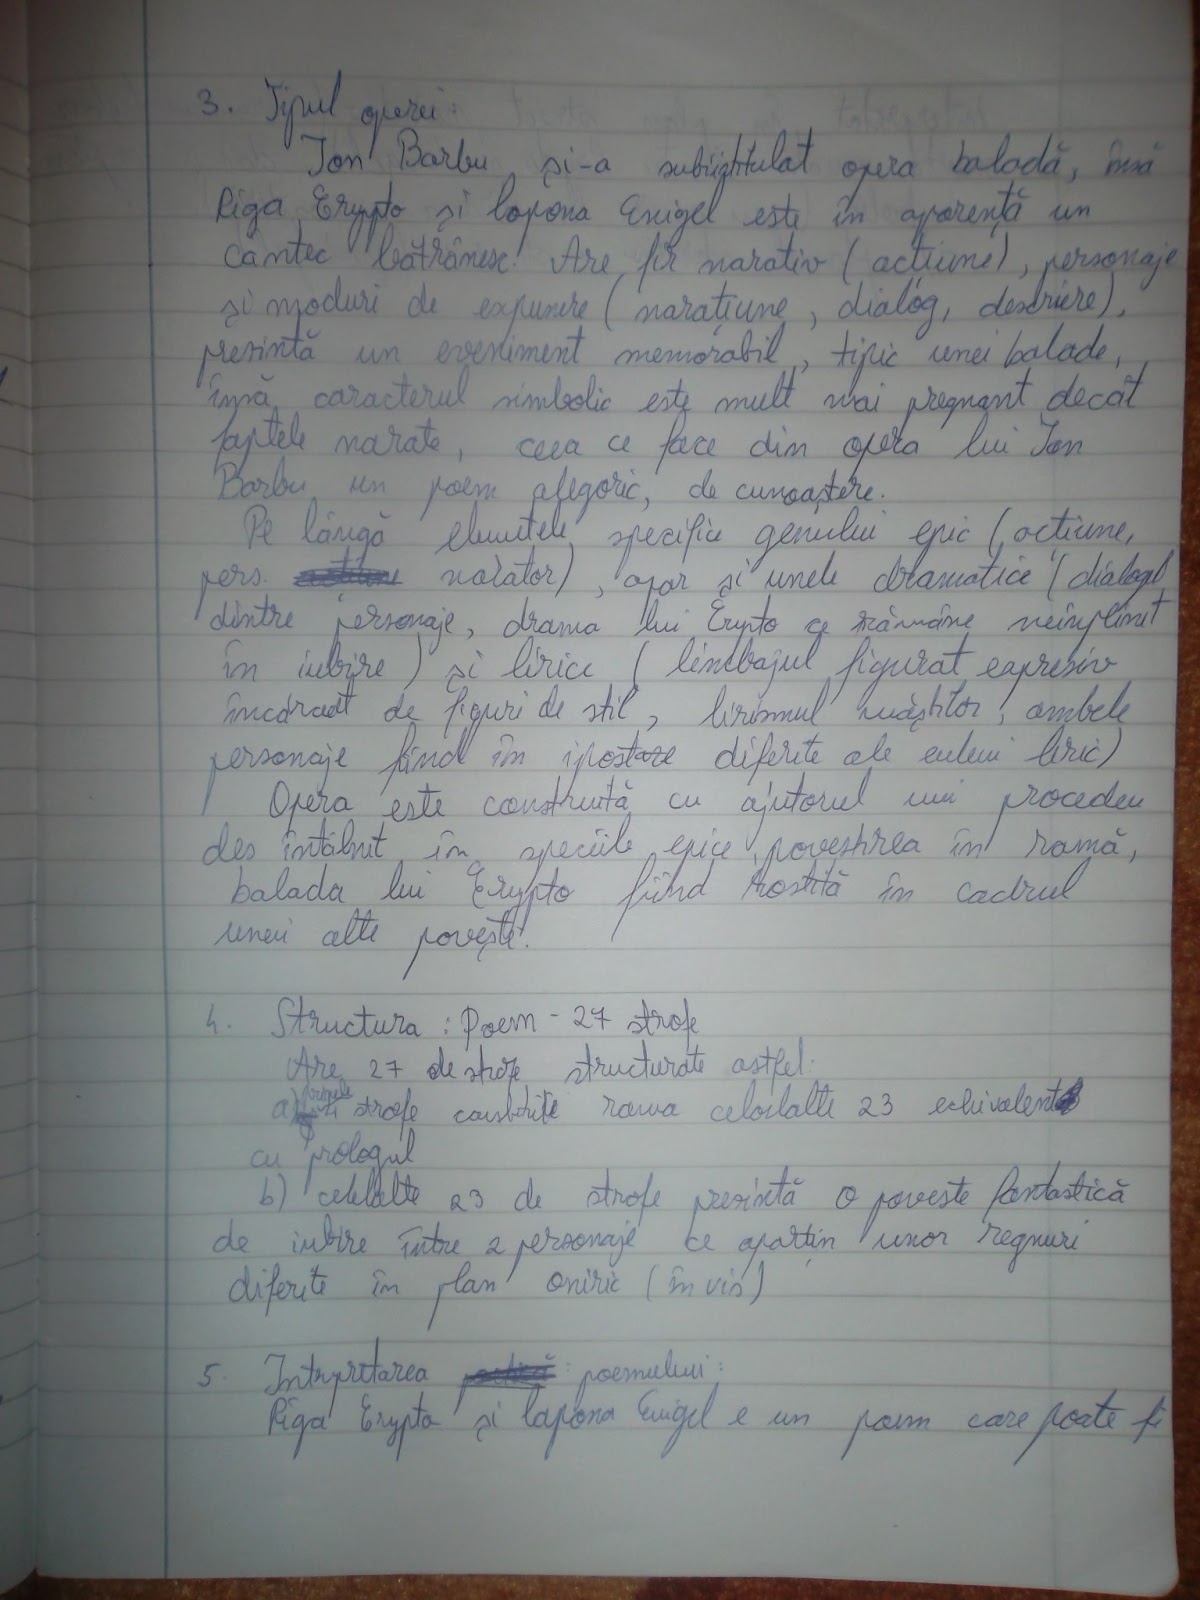 3. Tipul operei:
Ion Barbu și-a subintitulat opera baladă, însă
Riga Crypto și lapona Enigel este în aparență un
cântec bătrânesc. Are fir narativ (acțiune), personaje
și moduri de expunere (narațiune, dialog, descriere),
prezintă un eveniment memorabil, tipic unei balade,
însă caracterul simbolic este mult mai pregnant decât
faptele narate, ceea ce face din opera lui Ion
Barbu un poem alegoric, de cunoaștere.
Pe lângă elemntele specifice genului epic (acțiune,
pers. narator), apar și unele dramatice (dialogul
dintre personaje, drama lui Crypto ce rămâne neînplinit
în iubire) și lirice (limbajul figurat expresiv
încărcat de figuri de stil, lirismul măștilor, ambele
personaje fiind în ipostaze diferite ale eului liric)
Opera este construită cu ajutorul unui procedeu
des întâlnit în speciile epice, povestirea în ramă,
balada lui Crypto fiind rostită în cadrul
unei alte povești.
4. Structura: Poem - 27 strofe
Are 27 de strofe structurate astfel:
a) primele 4 strofe constituie rama celorlalte 23 echivalent
cu prologul
b) celelalte 23 de strofe prezintă o poveste fantastică
de iubire între 2 personaje ce aparțin unor regnuri
diferite în plan oniric (în vis)
5. Intrpretarea : poemului:
Riga Crypto și lapona Enigel e un poem care poate fi